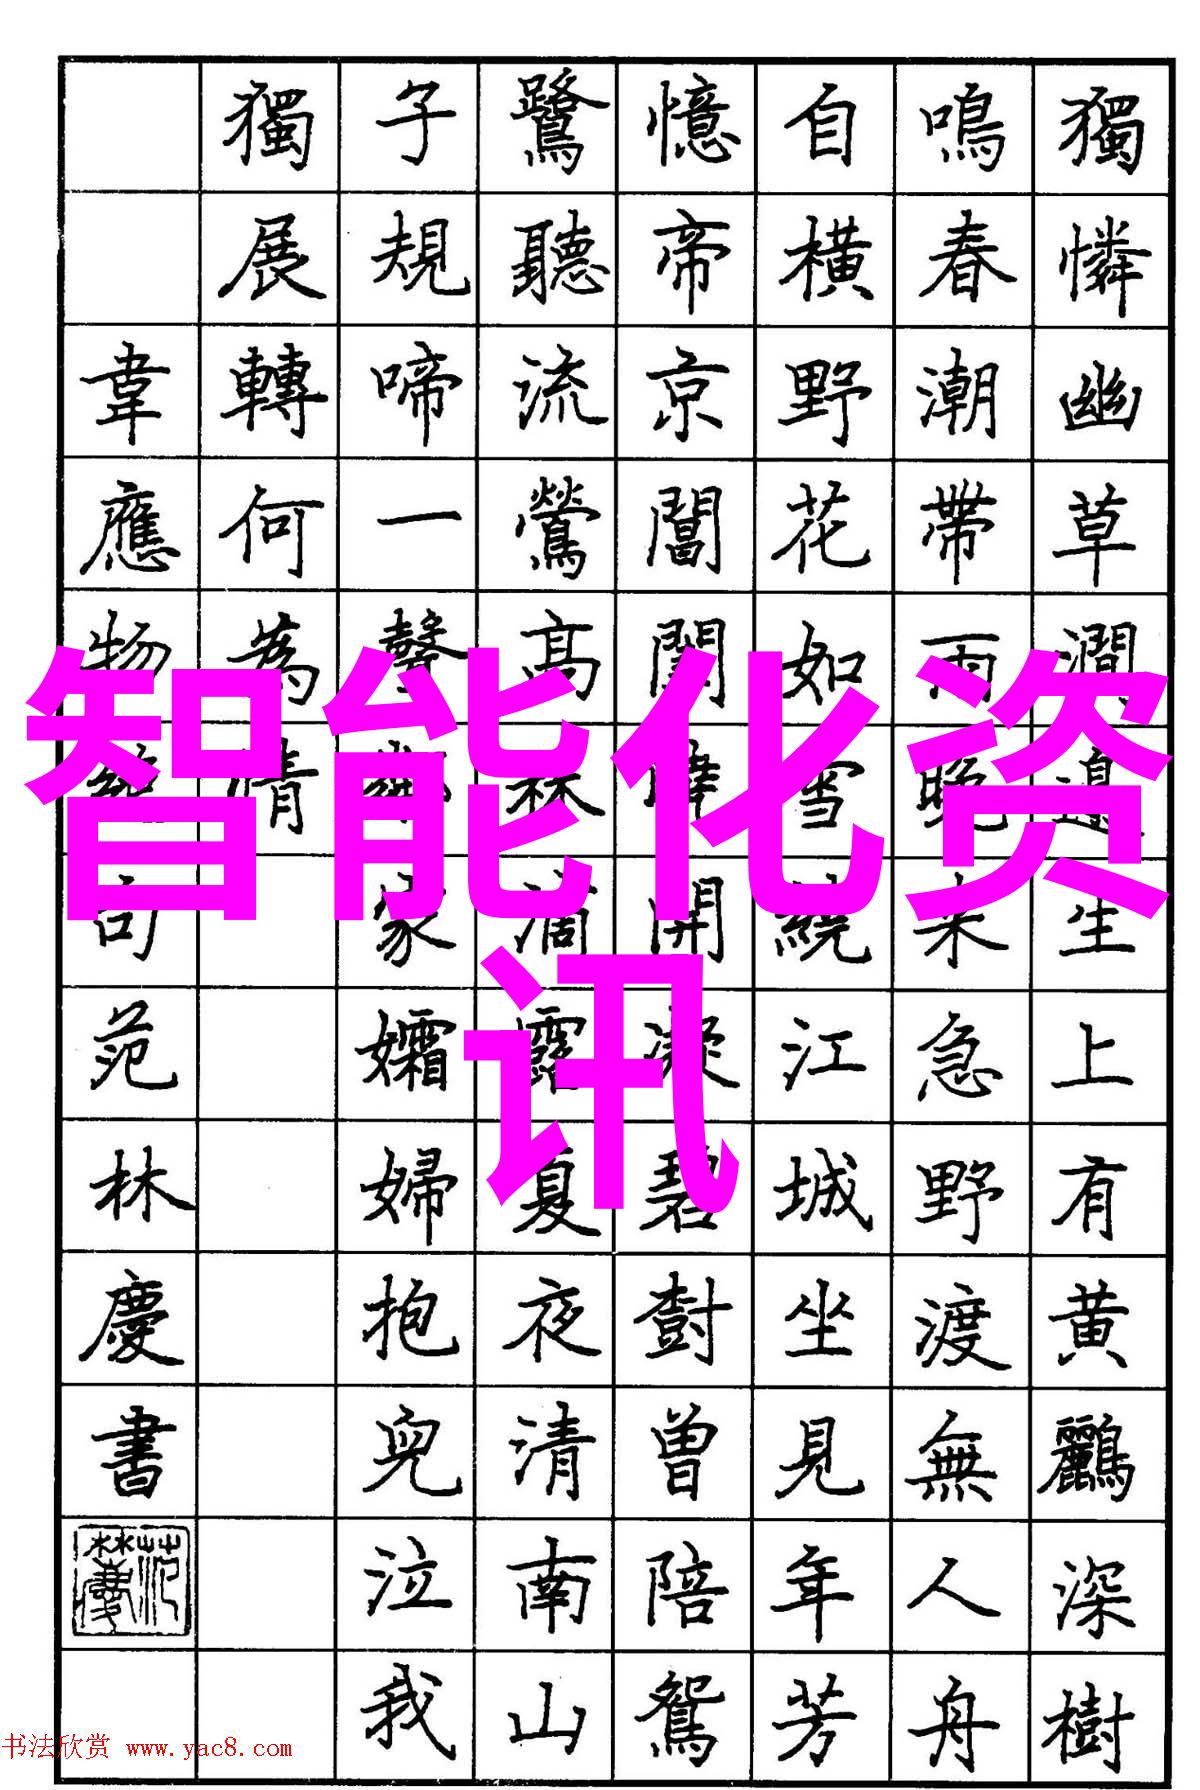 獨憐幽草澗邊生上有黃鸝深樹
鳴春潮帶雨晚来急野渡無人舟
自橫野花如雪繞江城坐見年芳
憶帝京閶闔曉開凝碧樹曾陪鴛
鷺聽流鶯高林滴露夏夜清南山
子規啼一聲鄰家孀婦抱兒泣我
獨展轉何為情
韋應物絕句范林慶書
智能化资
讯
书法欣赏 www.yac8.com